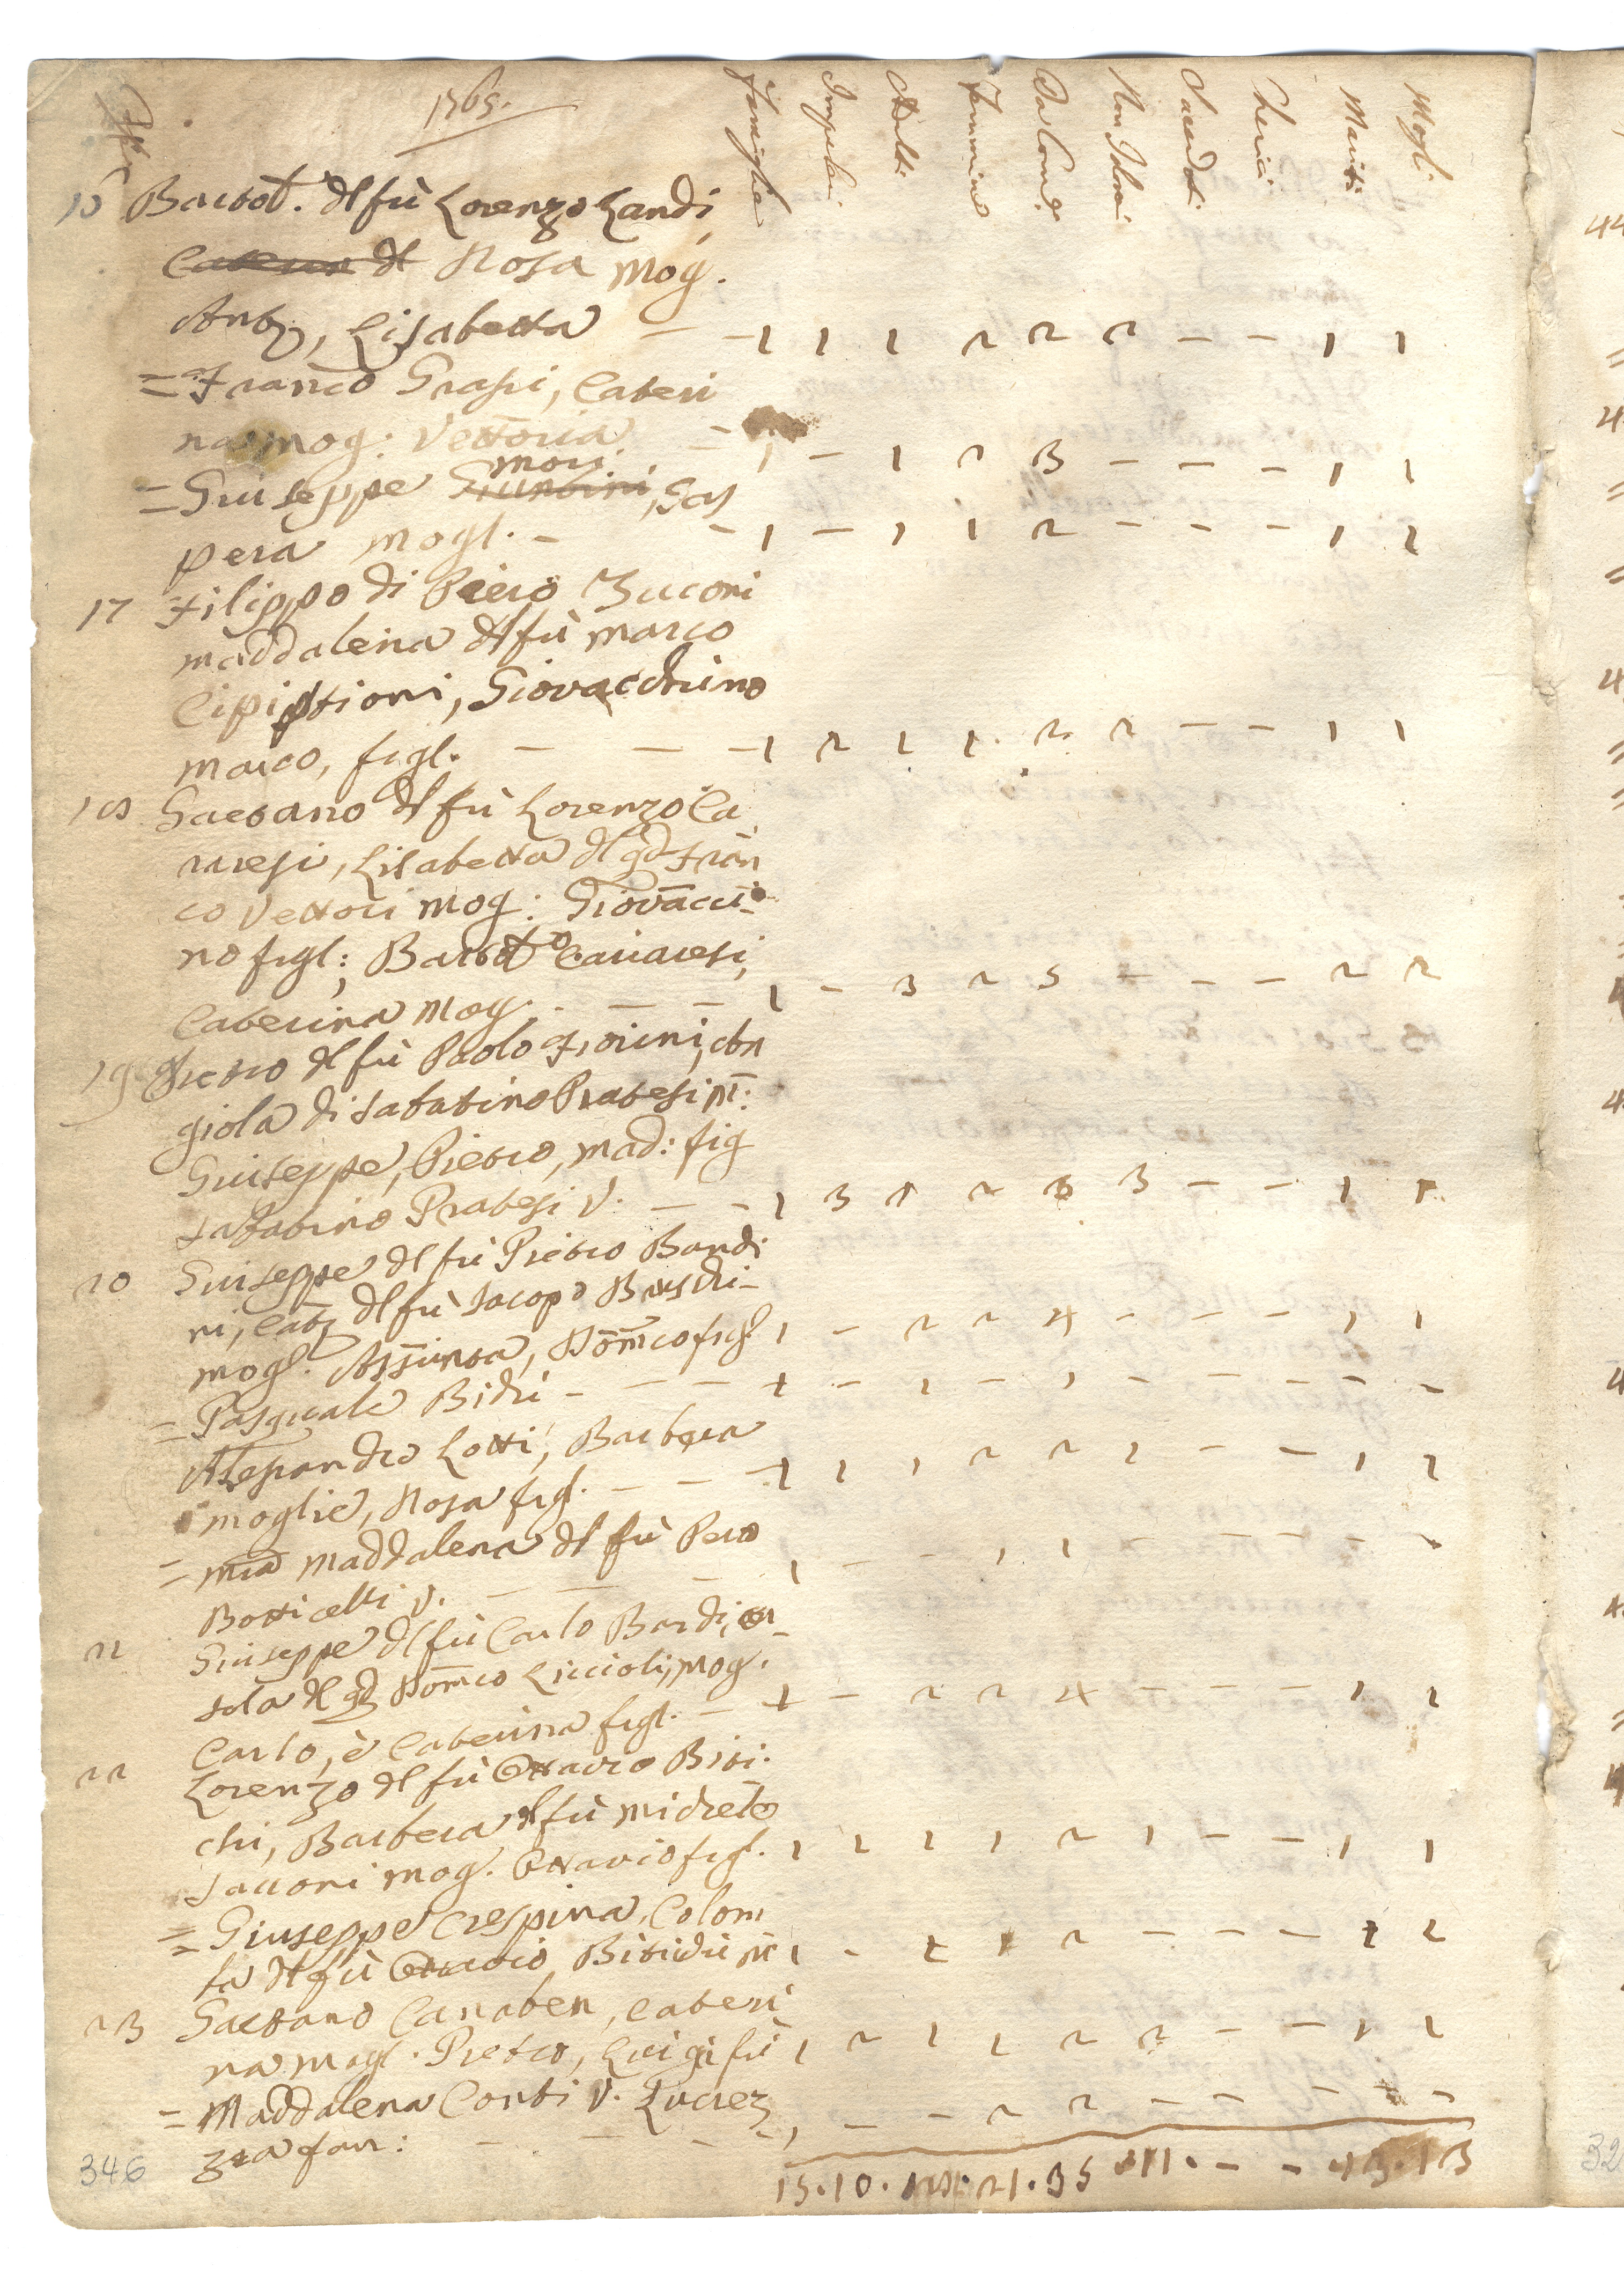 1765.
Famiglie Impuberi Adulti Femmine Da Com. Non Idonei Sacerdoti Cherici Mariti Mogli
16 Bartol. dl fù Lorenzo Landi,
Caterina dl Rosa Mog.
Anto, Lisabetta — - 1 1 1 2 2 2 - - 1 1
= Franco Grassi, Cateri
na mog: Vettoria - 1 - 1 2 3 - - - 1 1
mori.
= Giuseppe Giuntini, Gas
pera mogl. - - 1 - 1 1 2 - - - 1 1
17 Filippo di Piero Zucconi
maddalena dl fù Marco
Cipistioni, Giovacchino
marco, figl. — — - 1 2 1 1 2 2 - - 1 1
18 Gaetano dl fù Lorenzo Ca
raresi, Lisabetta dl qd Fran
co Vettori mog: Giovacci-
no figl:, Bartolo Cariaresi,
Caterina Mog. - — - 1 - 3 2 5 - - - 2 2
19 Pietro dl fù Paolo Fiorini, An
giola di Sabatino Pratesi m:
Giuseppe, Pietro, mad: fig
Sabatino Pratesi V. — - 1 3 1 2 3 3 - - 1 1
20 Giuseppe dl fù Pietro Bandi
ni, Cat dl fù Iacopo Buschi-
mogl. Assunta, Domco figl 1 - 2 2 4 - - - 1 1
= Pasquale Bichi - - - - 1 - 1 - 1 - - - - -
Alessandro Lotti, Barbera
moglie, Rosa figl. — - - 1 1 1 2 2 1 - - 1 1
= Mia Maddalena dl fù Pero
Botticelli V. — — - 1 - - 1 1 - - - - -
21 Giuseppe dl fù Carlo Bardi, Or-
sola dl qd Domco Liccioli, mog.
Carlo, è Caterina figl. - 1 - 2 2 4 - - - 1 1
22 Lorenzo dl fù Ottavio Biti-
chi, Barbera dl fù Michele
Tacconi mog. Ottavio figl. 1 1 1 1 2 1 - - 1 1
= Giuseppe Crespina, Colom
ba dl fù Ottavio Bitichi m 1 - 1 1 2 - - - 1 1
23 Gaetano Canaben, Cateri
na mogl. Pietro, Luigi fi 1 2 1 1 2 2 - - 1 1
= Maddalena Conti V. Lucrez
zia fan: - - - - 1 - - 2 2 - - - - -
15. 10. 21. 35 11. - - 13. 13
346